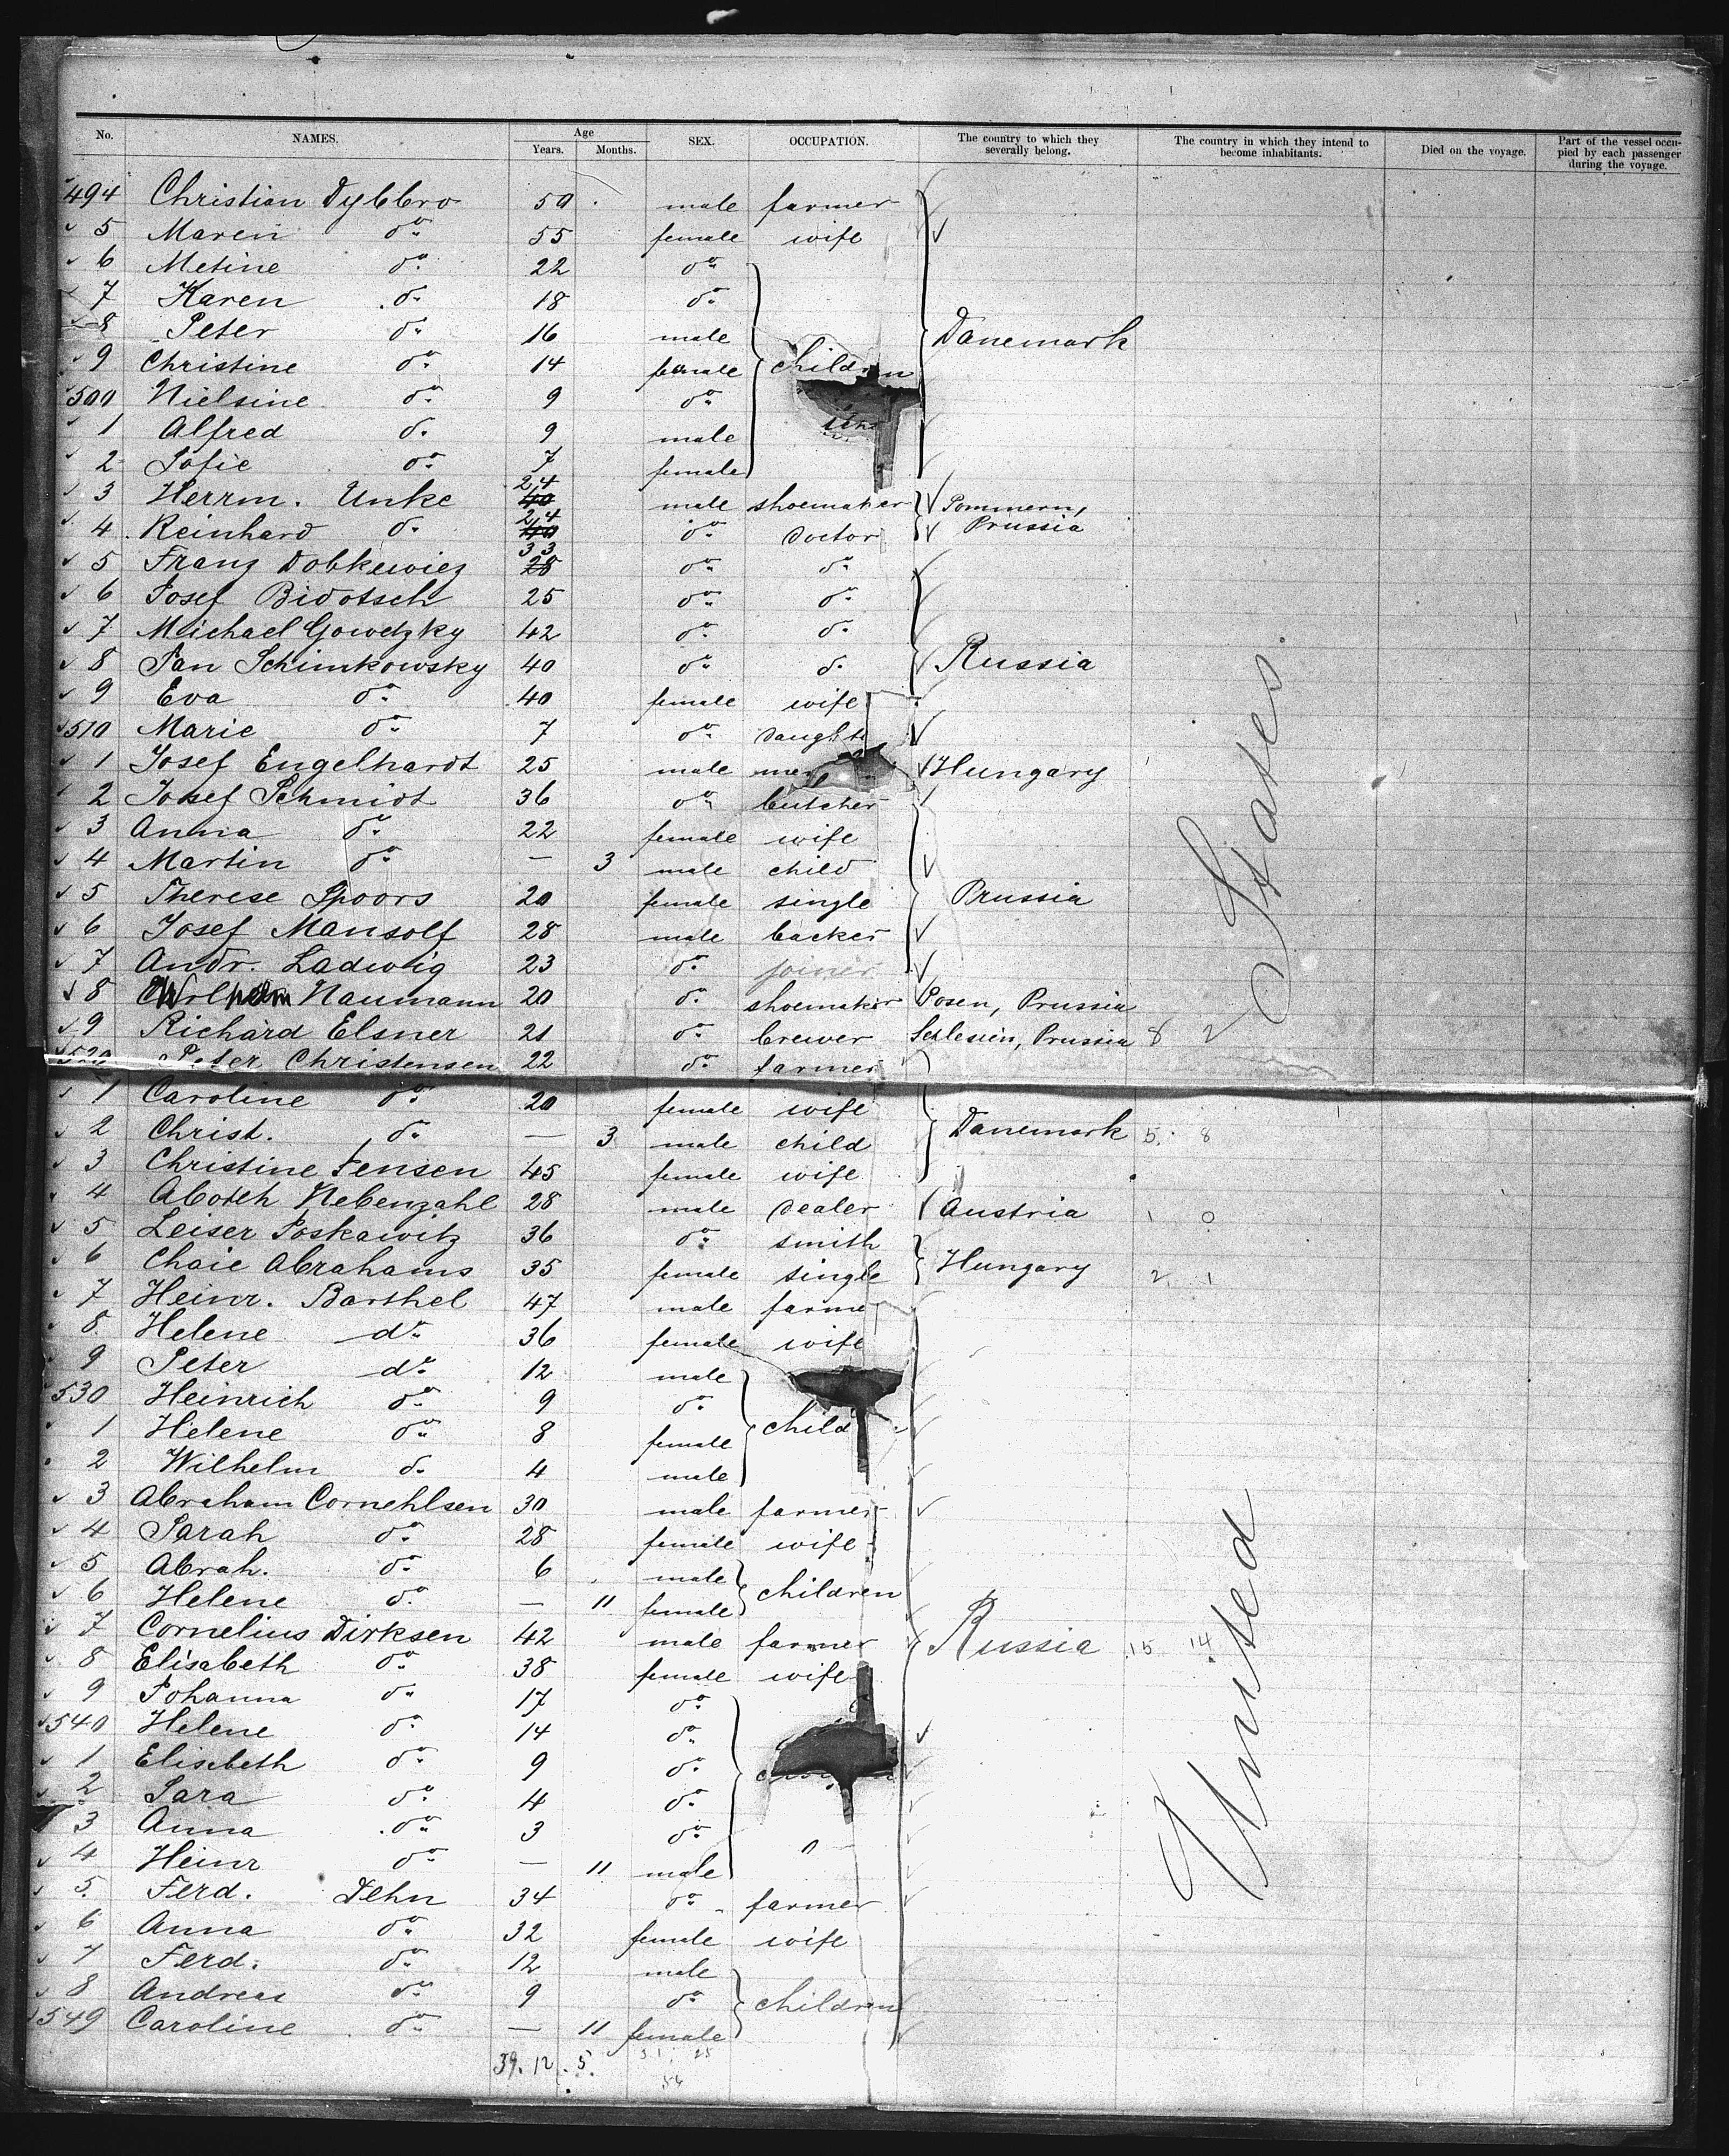 No. NAMES. Age Years. Months. SEX. OCCUPATION. The country to which they severally belong. The country in which they intend to become inhabitants. Died on the voyage. Part of the vessel occupied by each passenger during the voyage.
494 Christian Dybbro 50 male farmer
5 Maren do 55 female wife
6 Metine do 22 do
7 Karen do 18 do
8 Peter do 16 male Danemark
9 Christine do 14 female children
500 Nielsine do 9 do
1 Alfred do 9 male
2 Sofie do 7 female
3 Herrm. Unke 24 male shoemaker Pommern, Prussia
4 Reinhard do 24 do doctor
5 Franz Dobkewiez 33 do do
6 Josef Bidotsch 25 do do
7 Michael Gowdzky 42 do do
8 Jan Schimkowsky 40 do do Russia
9 Eva do 40 female wife
510 Marie do 7 do daught
1 Josef Engelhardt 25 male mer Hungary
2 Josef Schmidt 36 do butcher
3 Anna do 22 female wife
4 Martin do — 3 male child
5 Therese Spoors 20 female single Prussia
6 Josef Mansolf 28 male backer
7 Andr. Ladwig 23 do joiner
8 Wilhelm Naumann 20 do shoemaker Posen, Prussia
9 Richard Elsner 21 do brewer Schlesien, Prussia 8 2
520 Peter Christensen 22 do farmer
1 Caroline do 20 female wife
2 Christ. do — 3 male child Danemark 5. 8
3 Christine Jensen 45 female wife
4 Aboteh Nebenzahl 28 male dealer Austria 1 0
5 Leiser Joskawitz 36 do smith
6 Chaie Abrahams 35 female single Hungary 2 1
7 Heinr. Barthel 47 male farme
8 Helene do 36 female wife
9 Peter do 12 male
530 Heinrich do 9 do
1 Helene do 8 female child
2 Wilhelm do 4 male
3 Abraham Cornehlsen 30 male farmer
4 Sarah do 28 female wife
5 Abrah. do 6 male
6 Helene do — 11 female children
7 Cornelius Dirksen 42 male farmer Russia 15 14
8 Elisabeth do 38 female wife
9 Johanna do 17 do
540 Helene do 14 do
1 Elisebeth do 9 do
2 Sara do 4 do
3 Anna do 3 do
4 Heinr do — 11 male
5. Ferd. Dehn 34 do farmer
6 Anna do 32 female wife
7 Ferd. do 12 male
8 Andreas do 9 do children
549 Caroline do — 11 female
39. 12. 5. 31. 25
56
United States